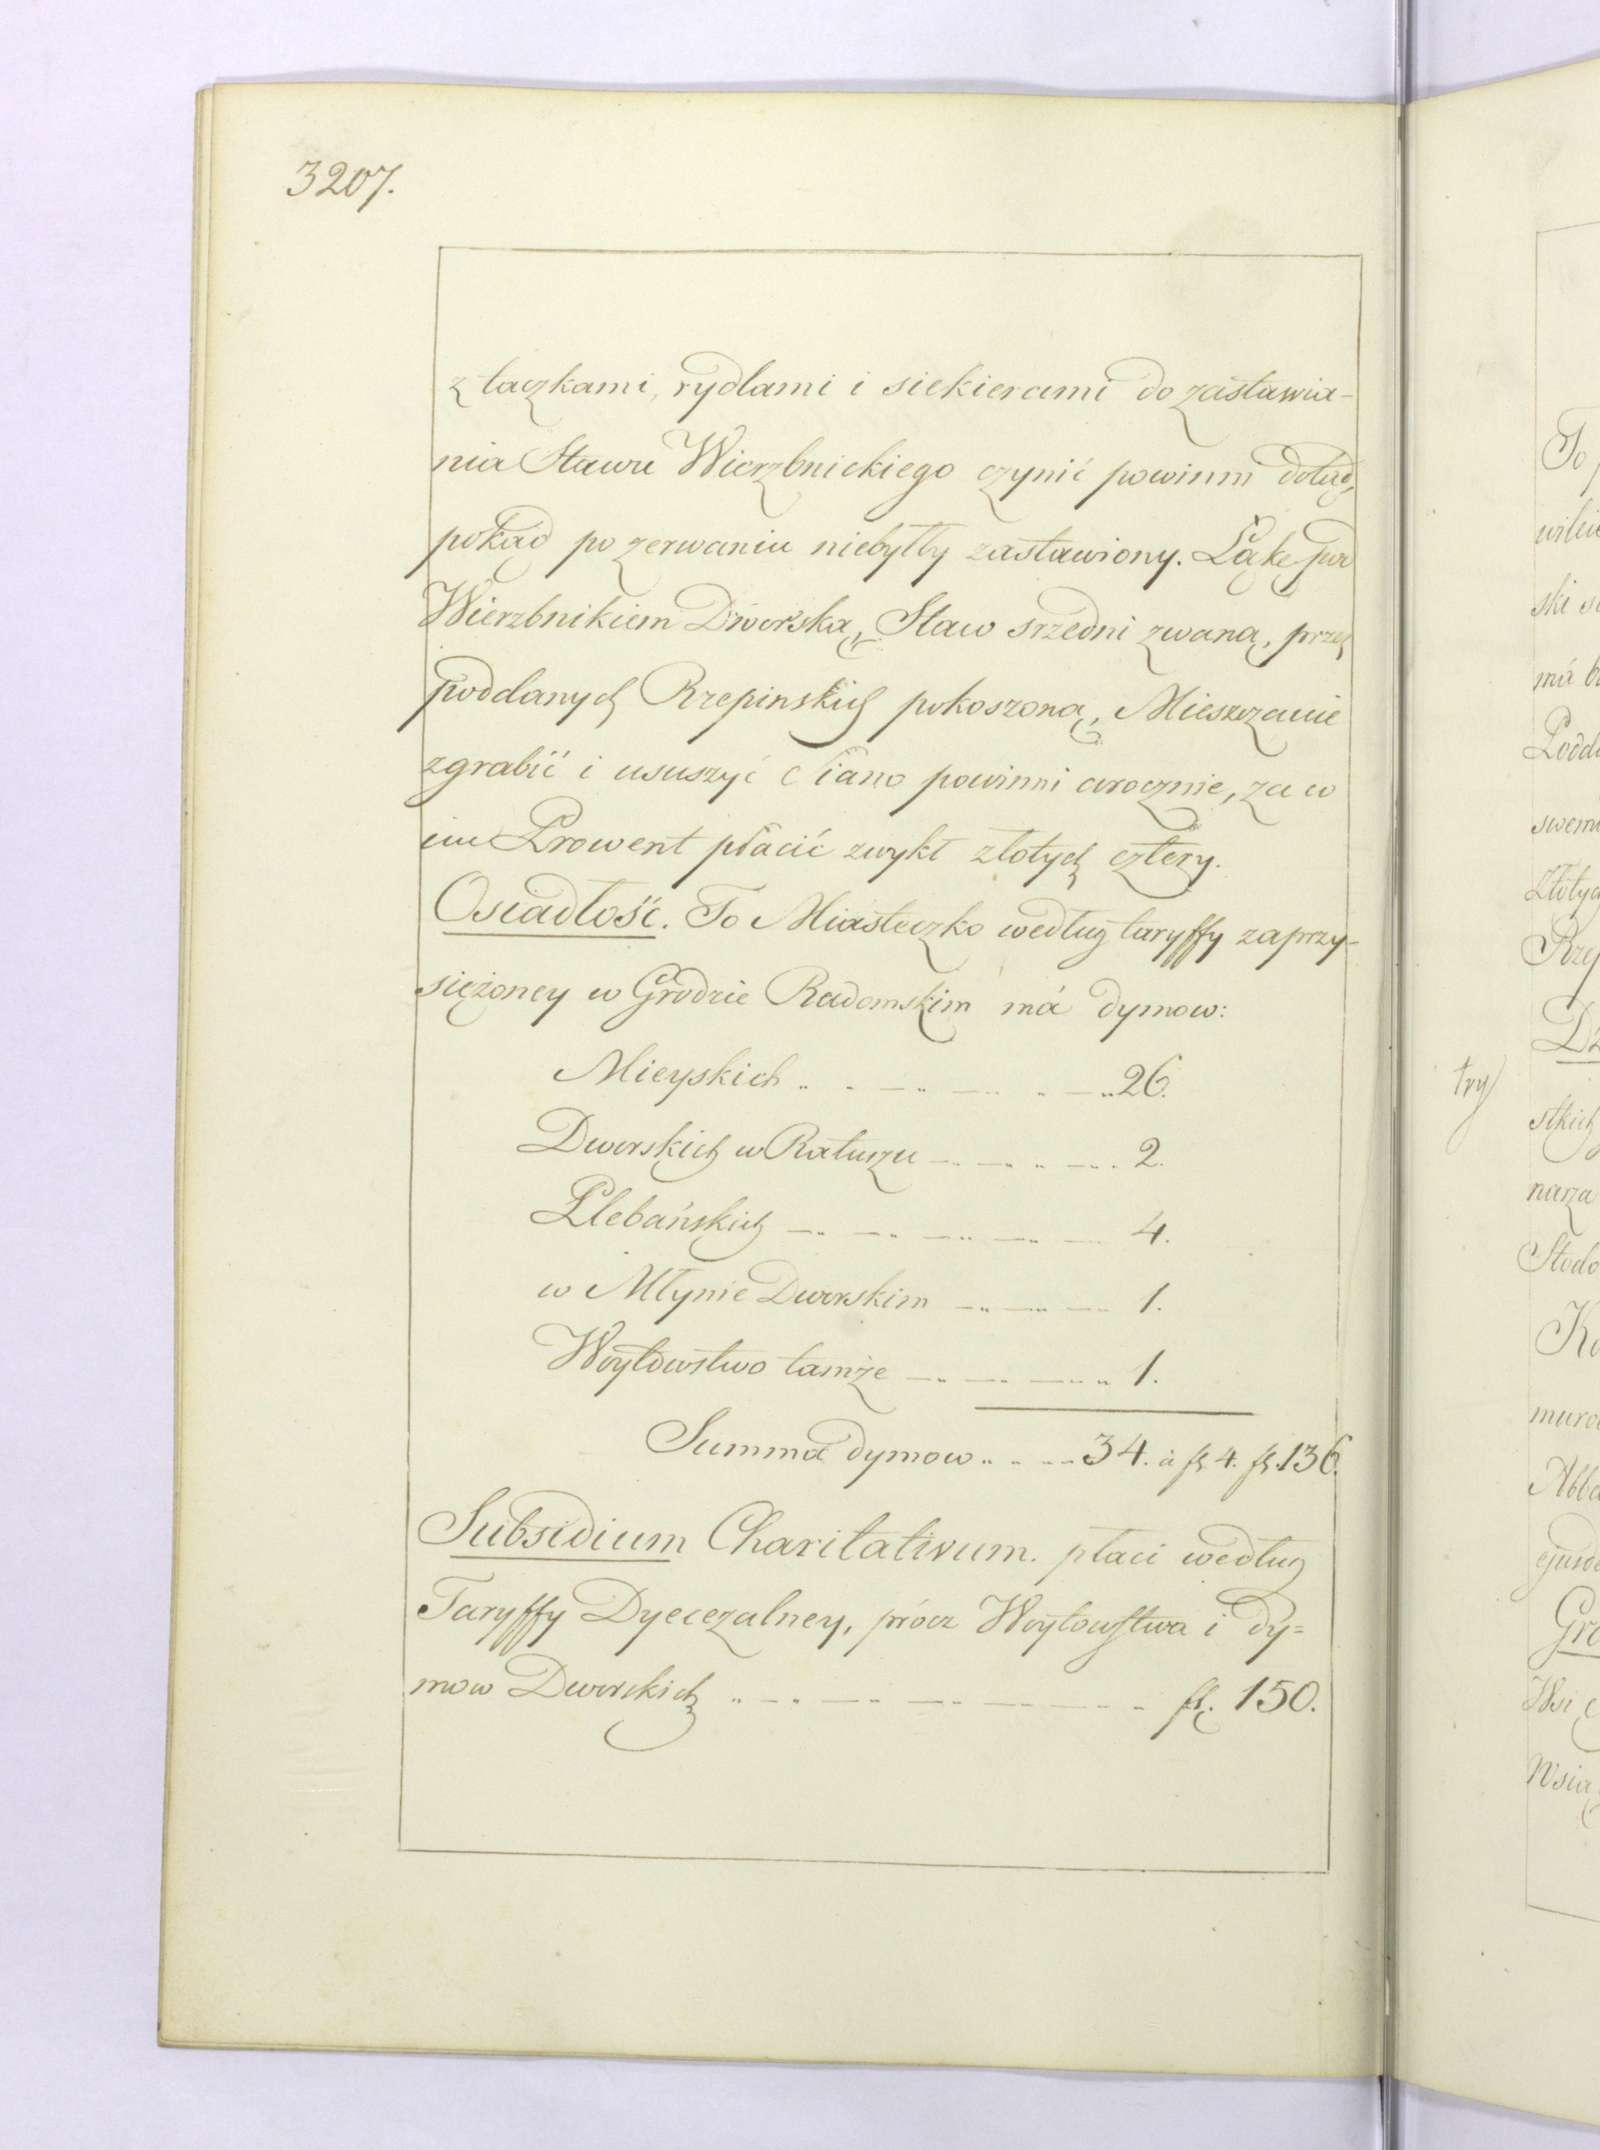 3207.
z taczkami, rydlami i siekierami do zastawia-
nia Stawu Wierzbnickiego czynić powinni dotąd,
pokąd po zerwaniu niebyłby zastawiony. Łąkę pod
Wierzbnikiem Dworską, Staw srzedni zwaną, przez
poddanych Rzepinskich pokoszoną, Mieszczanie
zgrabić i ususzyć Siano powinni corocznie, za co
im Prowent płacić zwykł złotych cztery.
Osiadłość. To Miasteczko według taryffy zaprzy-
siężoney w Grodzie Radomskim má dymow:
Mieyskich 26.
Dworskich w Ratuszu 2.
Plebańskich 4.
w Młynie Dworskim 1.
Woytowstwo tamże 1.
Summa dymow 34. à fl 4. fl. 136.
Subsidium Charitativum. płaci według
Taryffy Dyecezalney, prócz Woytowstwa i dy=
mow Dworskich fl. 150.